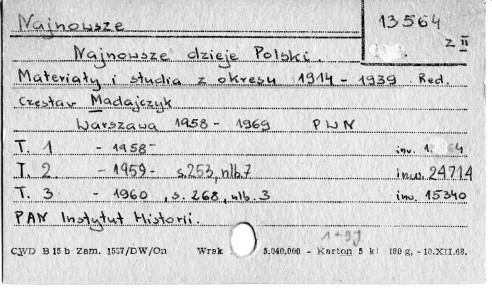 Najnowsze
13564
z II
Najnowsze dzieje Polski.
Materiały i studia z okresu 1914 - 1939. Red.
Czesław Madajczyk
Warszawa 1958 - 1969 PWN
T. 1 - 1958 - inw. 1 64
T. 2. - 1959 - s.253, nlb.7 inw. 24714
T. 3 - 1960, s. 268, nlb. 3 inw. 15340
PAN Instytut Historii.
1+9j
CWD B 15 b Zam. 1557/DW/On Wrak 5.040,000 - Karton 5 kl 180 g, - 10.XII.68